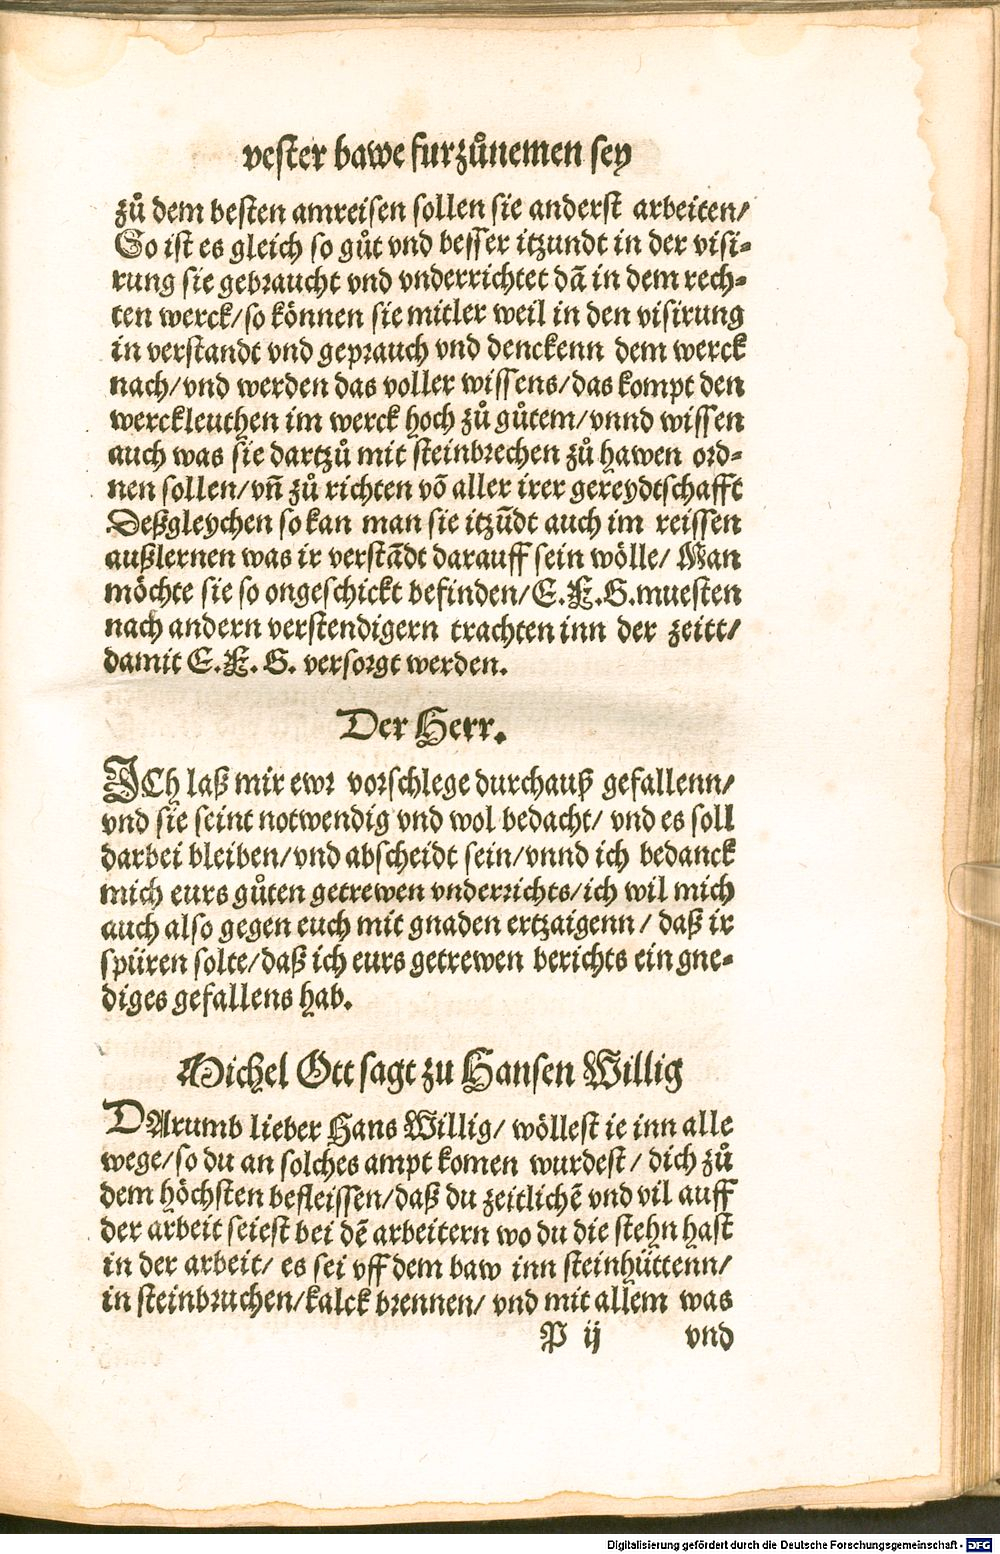 vester bawe furzůnemen sey
zů dem besten amreisen sollen sie anderst arbeiten/
So ist es gleich so gůt vnd besser itzundt in der visi-
rung sie gebraucht vnd vnderrichtet dā in dem rech-
ten werck/so können sie mitler weil in den visirung
in verstandt vnd geprauch vnd denckenn dem werck
nach/vnd werden das voller wissens/das kompt den
werckleuthen im werck hoch zů gůtem/vnnd wissen
auch was sie dartzů mit steinbrechen zů hawen ord-
nen sollen/vn̄ zů richten vō aller irer gereydtschafft
Deßgleychen so kan man sie itzūdt auch im reissen
außlernen was ir verstādt darauff sein wölle/ Man
möchte sie so ongeschickt befinden/E.F.G.muesten
nach andern verstendigern trachten inn der zeitt/
damit E.F.G. versorgt werden.
Der Herr.
ICh laß mir ewr vorschlege durchauß gefallenn/
vnd sie seint notwendig vnd wol bedacht/ vnd es soll
darbei bleiben/vnd abscheidt sein/vnnd ich bedanck
mich eurs gůten getrewen vnderrichts/ich wil mich
auch also gegen euch mit gnaden ertzaigenn/ daß ir
spüren solte/daß ich eurs getrewen berichts ein gne-
diges gefallens hab.
Michel Ott sagt zu Hansen Willig
DArumb lieber Hans Willig/ wöllest ie inn alle
wege/so du an solches ampt komen wurdest/ dich zů
dem höchsten befleissen/daß du zeitlichē vnd vil auff
der arbeit seiest bei dē arbeitern wo du die stehn hast
in der arbeit/ es sei vff dem baw inn steinhüttenn/
in steinbruchen/kalck brennen/ vnd mit allem was
P ij vnd
Digitalisierung gefördert durch die Deutsche Forschungsgemeinschaft - DFG